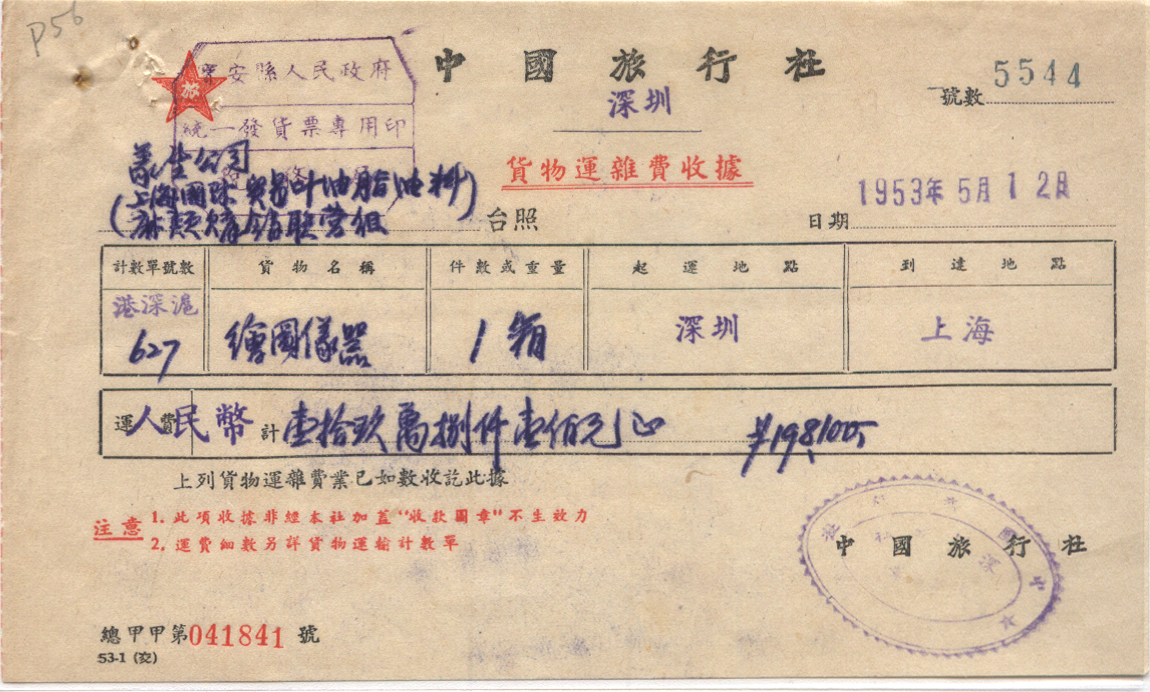 P56
旅
寶安縣人民政府
統一發貨票專用印
中國旅行社
深圳
號數 5544
貨物運雜費收據
1953年5月12日
日期
公司
台照
計數單號數 貨物名稱 件數或重量 起運地點 到達地點
港深滬
627 繪圖儀器 1箱 深圳 上海
運費 人民幣 計 壹拾玖萬捌仟壹佰元正 198,100.-
上列貨物運雜費業已如數收訖此據
注意
1. 此項收據非經本社加蓋“收款圖章”不生效力
2. 運費細數另詳貨物運輸計數單
中國旅行社
總甲甲第041841號
53-1 (交)